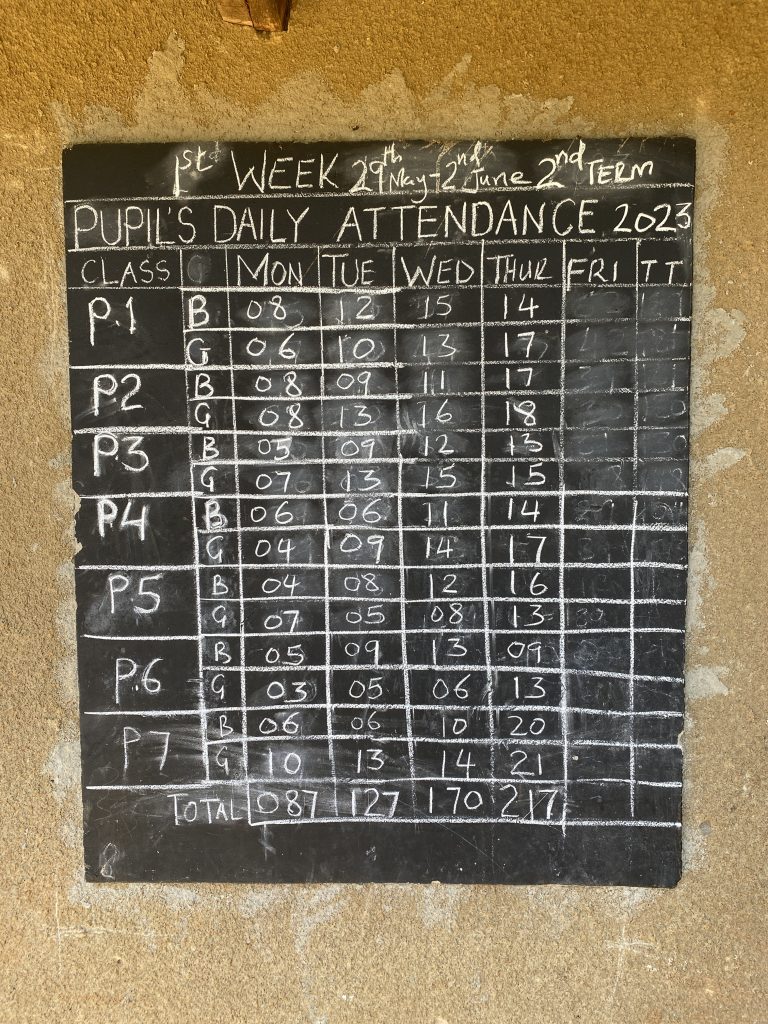 1std WEEK 29th May-2nd June 2nd TERM
PUPIL'S DAILY ATTENDANCE 2023
CLASS G MON TUE WED THUR FRI TT
P.1 B 08 12 15 14
G 06 10 13 17
P2 B 08 09 11 17
G 08 13 16 18
P3 B 05 09 12 13
G 07 13 15 15
P4 B 06 06 11 14
G 04 09 14 17
P5 B 04 08 12 16
G 07 05 08 13
P.6 B 05 09 13 09
G 03 05 06 13
P7 B 06 06 10 20
G 10 13 14 21
TOTAL 087 127 170 217
8